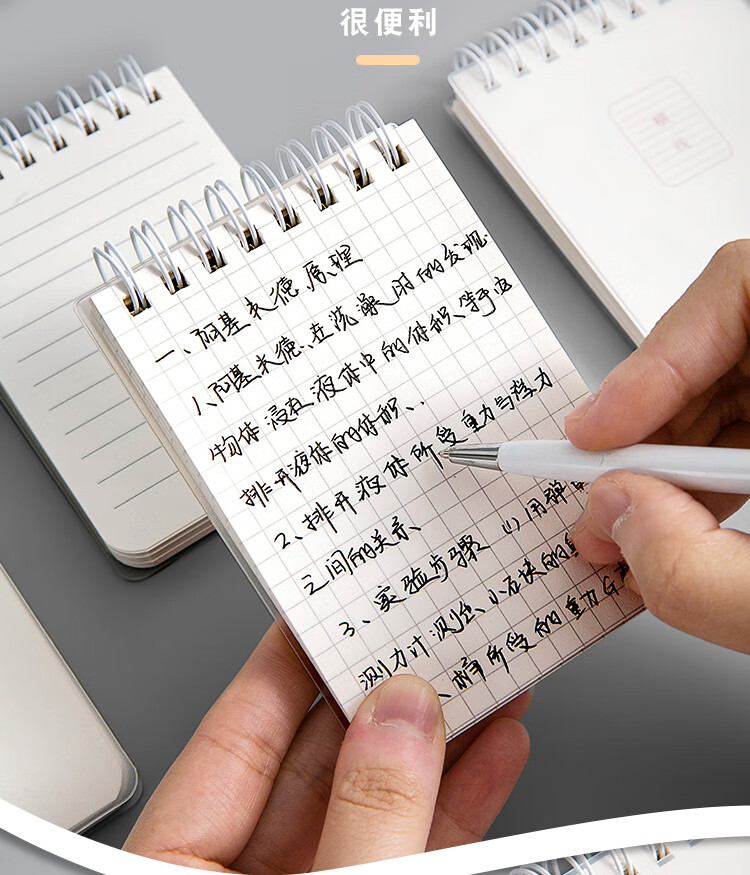 很便利
一、阿基米德原理
1、阿基米德、在洗澡时的发现
物体浸在液体中的体积等于
排开液体的体积、
2、排开液体所受重力与浮力
之间的关系
3、实验步骤 (1)用弹
测力计测出、小石块的
、桶所受的重力G